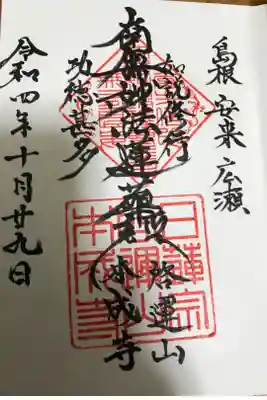 島根 安来 広瀬
如説修行
南無妙法蓮華経
功徳甚多
啓運山
本成寺
令和四年十月廿九日
日蓮宗